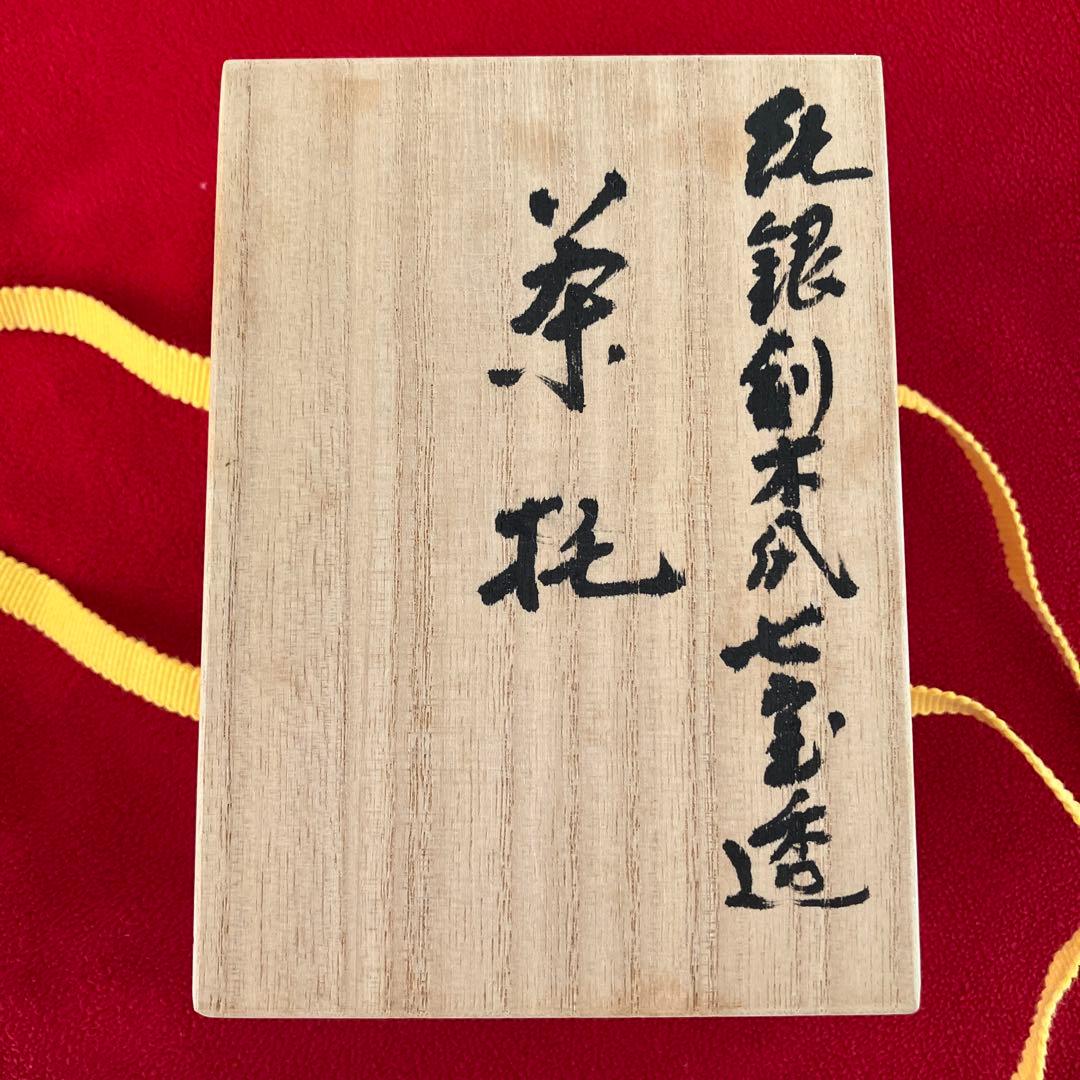 純銀木瓜七宝透
茶托